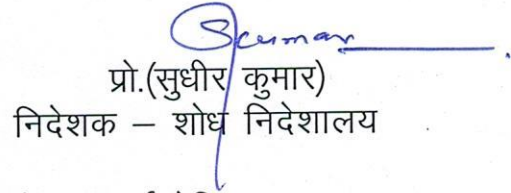 Skumar
प्रो.(सुधीर कुमार)
निदेशक – शोध निदेशालय